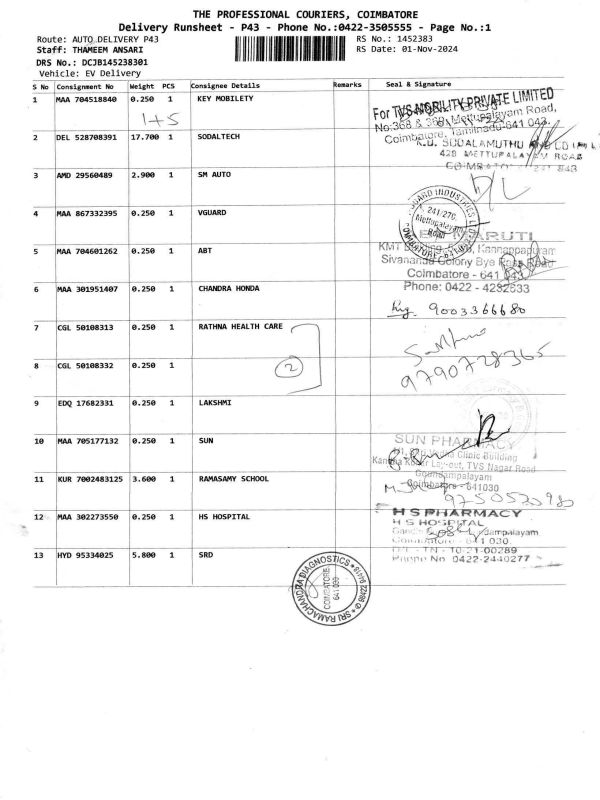 THE PROFESSIONAL COURIERS, COIMBATORE
Delivery Runsheet - P43 - Phone No.:0422-3505555 - Page No.:1
Route: AUTO DELIVERY P43
RS No.: 1452383
Staff: THAMEEM ANSARI
RS Date: 01-Nov-2024
DRS No.: DCJB145238301
Vehicle: EV Delivery
S No Consignment No Weight PCS Consignee Details Remarks Seal & Signature
1 MAA 704518840 0.250 1 KEY MOBILETY
1+5
For TVS MOBILITY PRIVATE LIMITED
No:368 & 369, Mettupalayam Road,
Coimbatore, Tamilnadu-641 043.
2 DEL 528708391 17.700 1 SODALTECH
K.U. SUDALAMUTHU AND CO
428 METTUPALAYAM ROAD
COIMBATORE 641 043
3 AMD 29560489 2.900 1 SM AUTO
4 MAA 867332395 0.250 1 VGUARD
GUARD INDUSTRIES LTD
241/276,
Mettupalayam
Road
COIMBATORE
5 MAA 704601262 0.250 1 ABT
MARUTI
KMT Kannappapuram
Sivananda Colony Bye Pass Road
Coimbatore - 641
Phone: 0422 - 4232633
6 MAA 301951407 0.250 1 CHANDRA HONDA
9003366680
7 CGL 50108313 0.250 1 RATHNA HEALTH CARE
2
9790728365
8 CGL 50108332 0.250 1
9 EDQ 17682331 0.250 1 LAKSHMI
10 MAA 705177132 0.250 1 SUN
SUN PHARMACY
Clinic Building
Lay-out, TVS Nagar Road
Goundampalayam
Coimbatore - 641030
11 KUR 7002483125 3.600 1 RAMASAMY SCHOOL
9750520980
12 MAA 302273550 0.250 1 HS HOSPITAL
HS PHARMACY
H S HOSPITAL
Coimbatore - 641 030
D/L - TN - 10-21-00289
Phone No 0422-2440277
13 HYD 95334025 5.800 1 SRD
SRI RAMACHANDRA DIAGNOSTICS
COIMBATORE
641 030